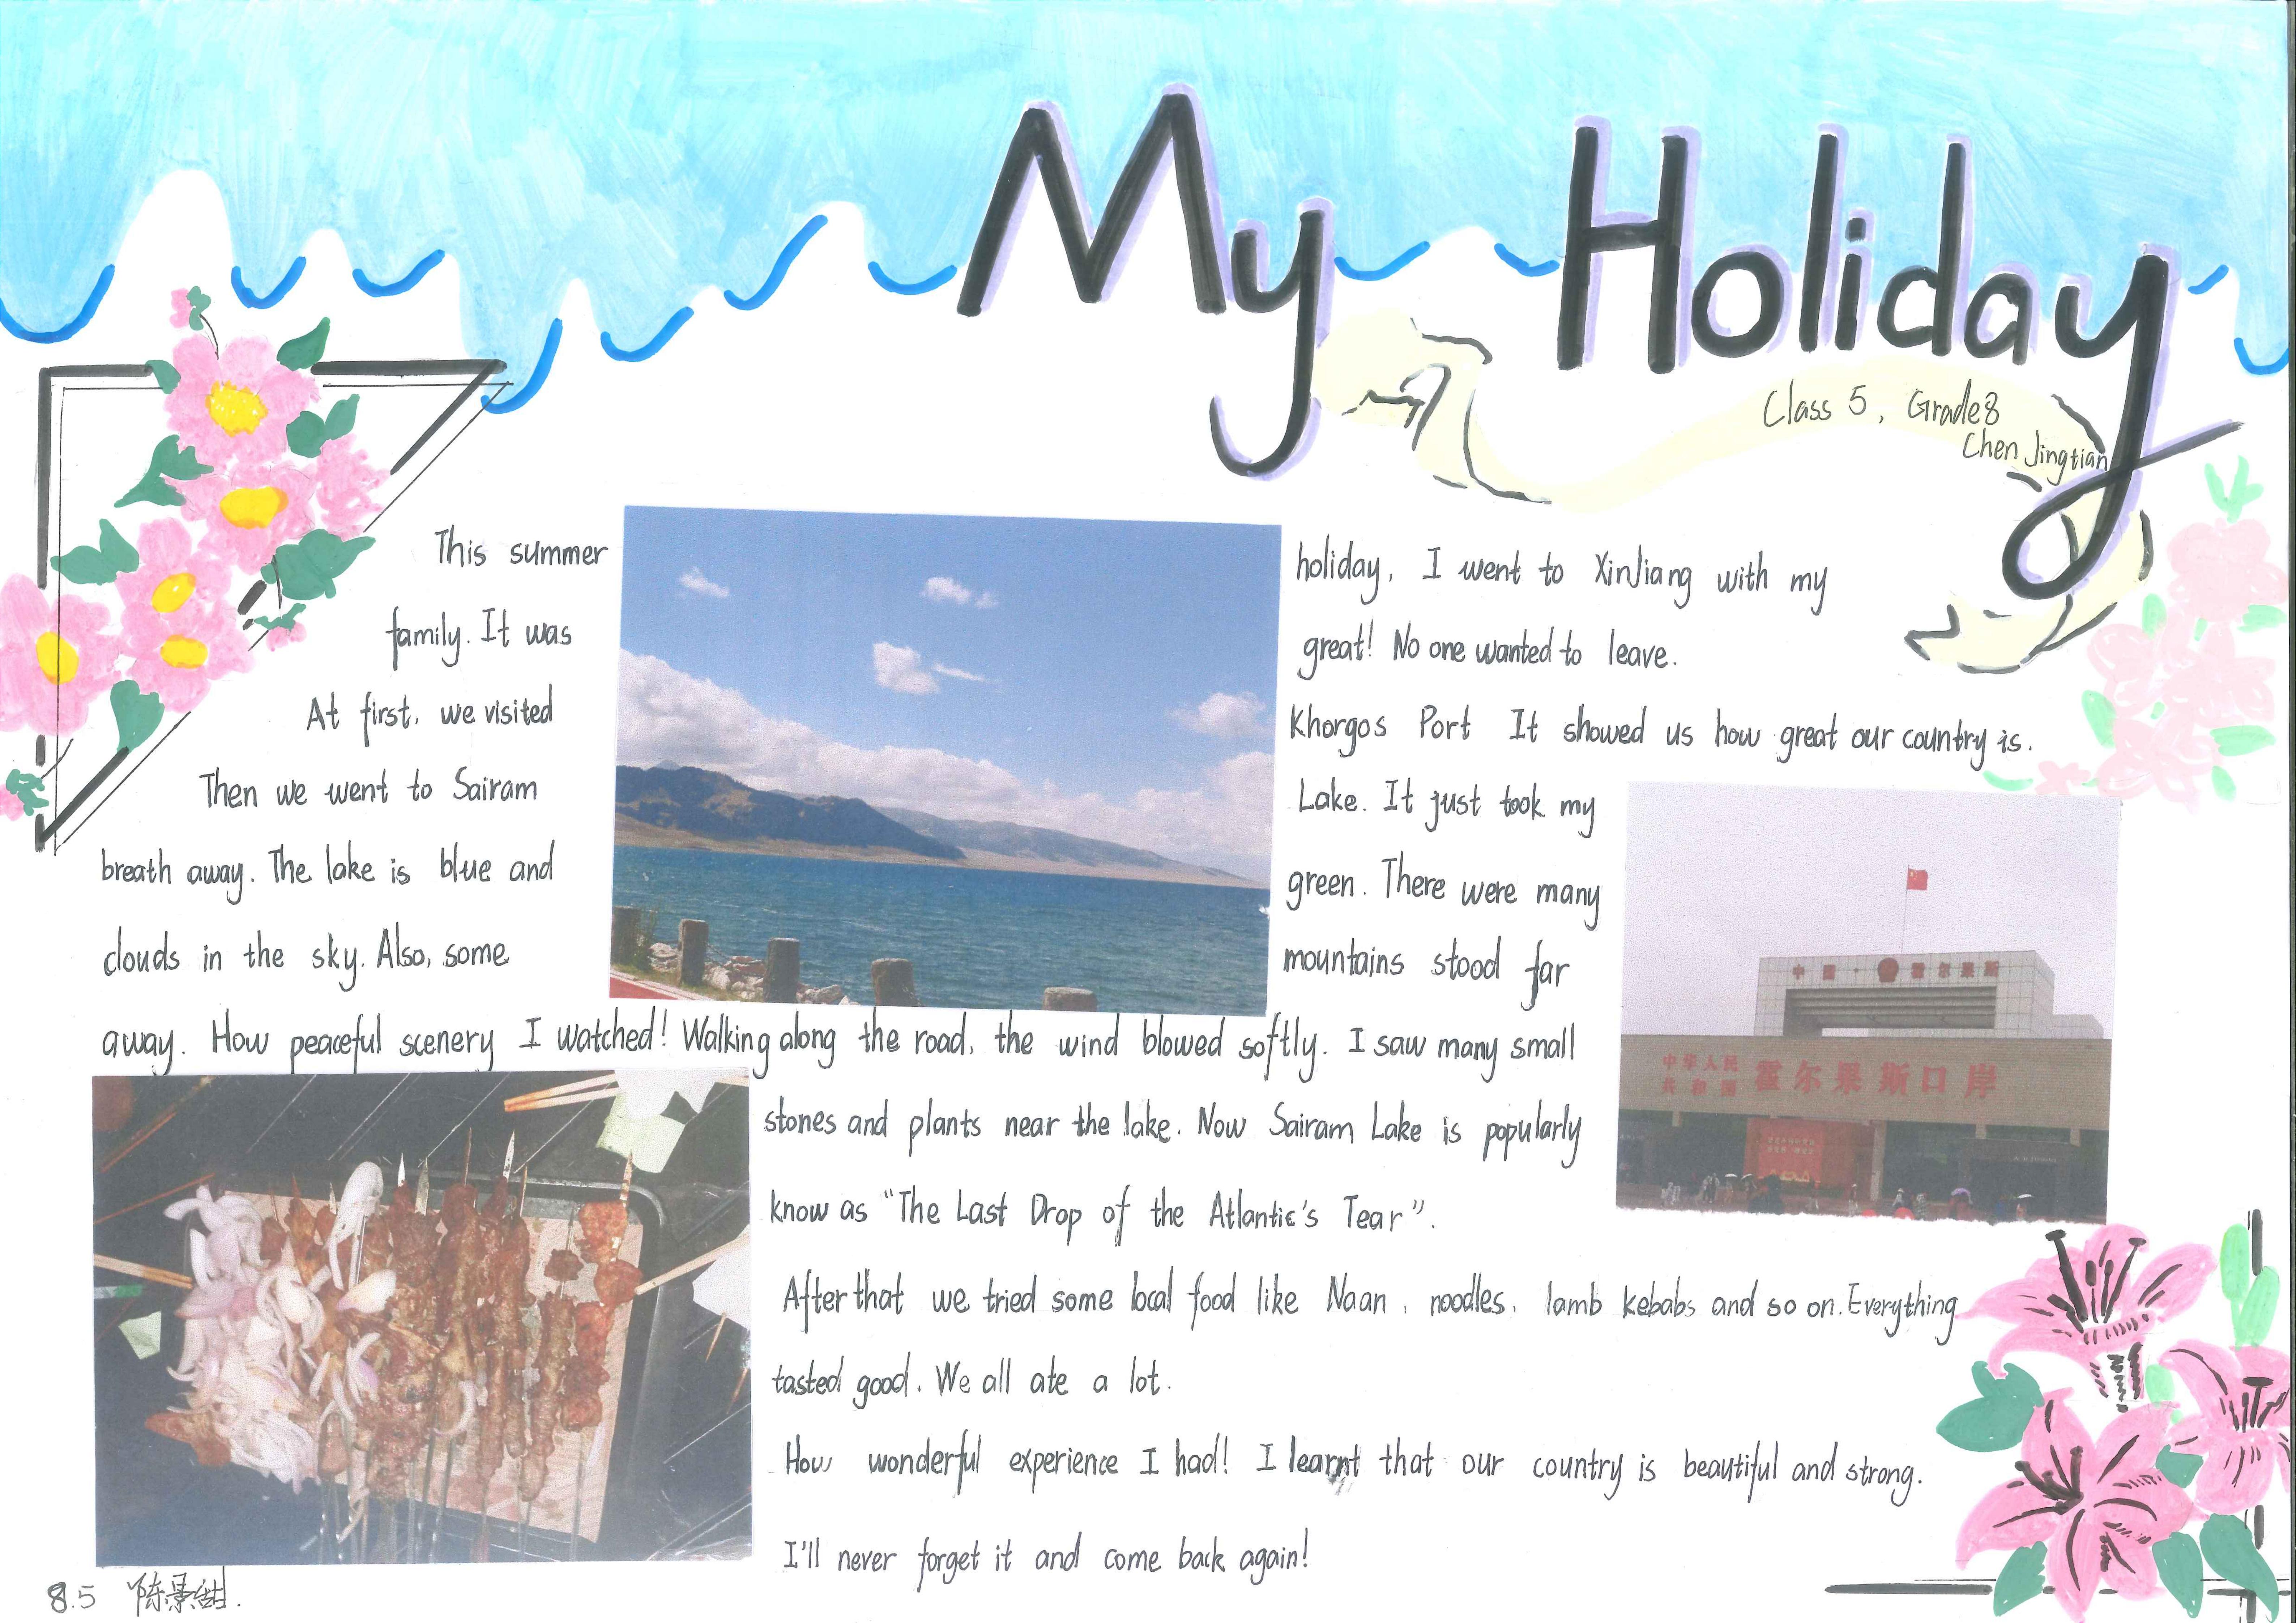 My Holiday
Class 5, Grade8
Chen Jingtian
This summer holiday, I went to XinJiang with my
family. It was great! No one wanted to leave.
At first, we visited Khorgos Port It showed us how great our country is.
Then we went to Sairam Lake. It just took my
breath away. The lake is blue and green. There were many
clouds in the sky. Also, some mountains stood far
away. How peaceful scenery I watched! Walking along the road, the wind blowed softly. I saw many small
stones and plants near the lake. Now Sairam Lake is popularly
know as "The Last Drop of the Atlantic's Tear".
After that we tried some local food like Naan, noodles, lamb kebabs and so on. Everything
tasted good. We all ate a lot.
How wonderful experience I had! I learnt that our country is beautiful and strong.
I'll never forget it and come back again!
中国·霍尔果斯
中华人民
共和国 霍尔果斯口岸
8.5 陈景甜.